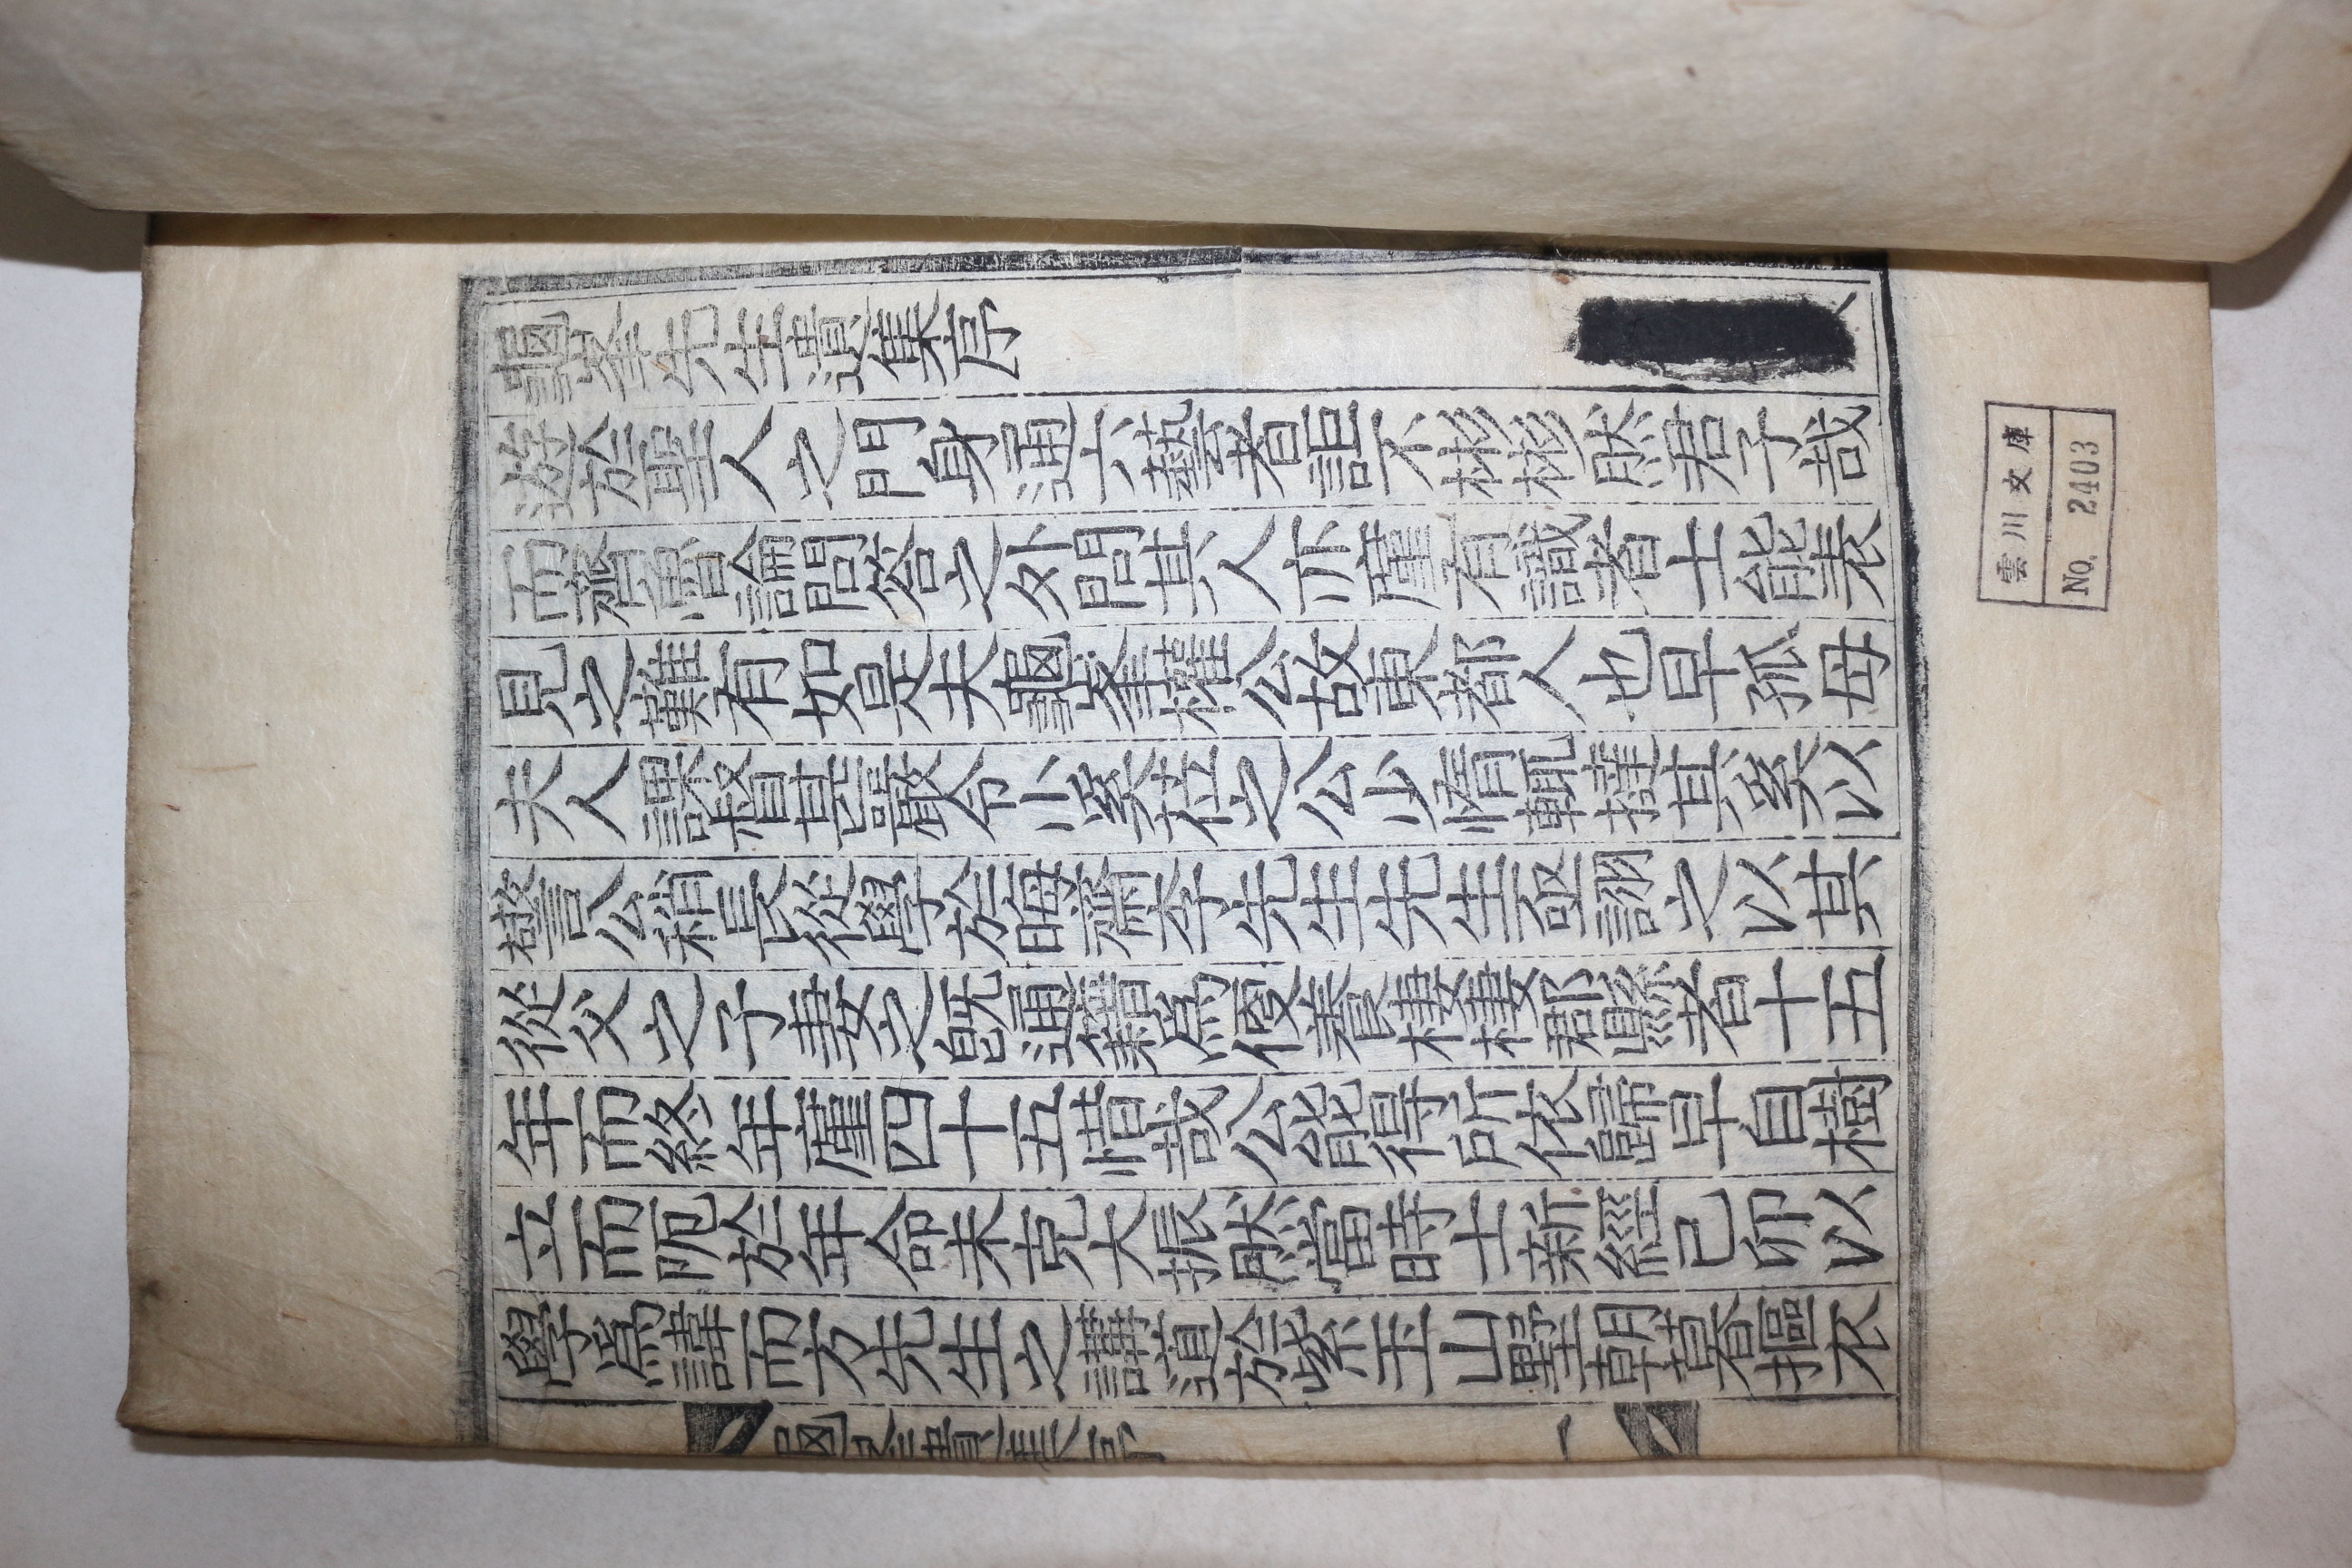 龜峯先生遺集序
游於聖人之門身通六藝者詎不彬彬然君子哉
而魯論問答之外問其人亦廑有識者士能表
見之難有如是夫龜峯權公故東都人也早孤母
夫人課督甚嚴令小奚之公少惰輒撻其奚以
警公稍長從學於晦齋李先生先生亟詡之以其
從父之子妻之既通籍爲優養棲棲郡縣者十五
年而終年廑四十五惜哉公能得所依歸早自樹
立而阨於年命未克大振然當時士新經己卯以
學爲諱而方先生之講道於紫玉山墅朝暮摳衣
龜峯遺集序 一
雲川文庫
No. 2403